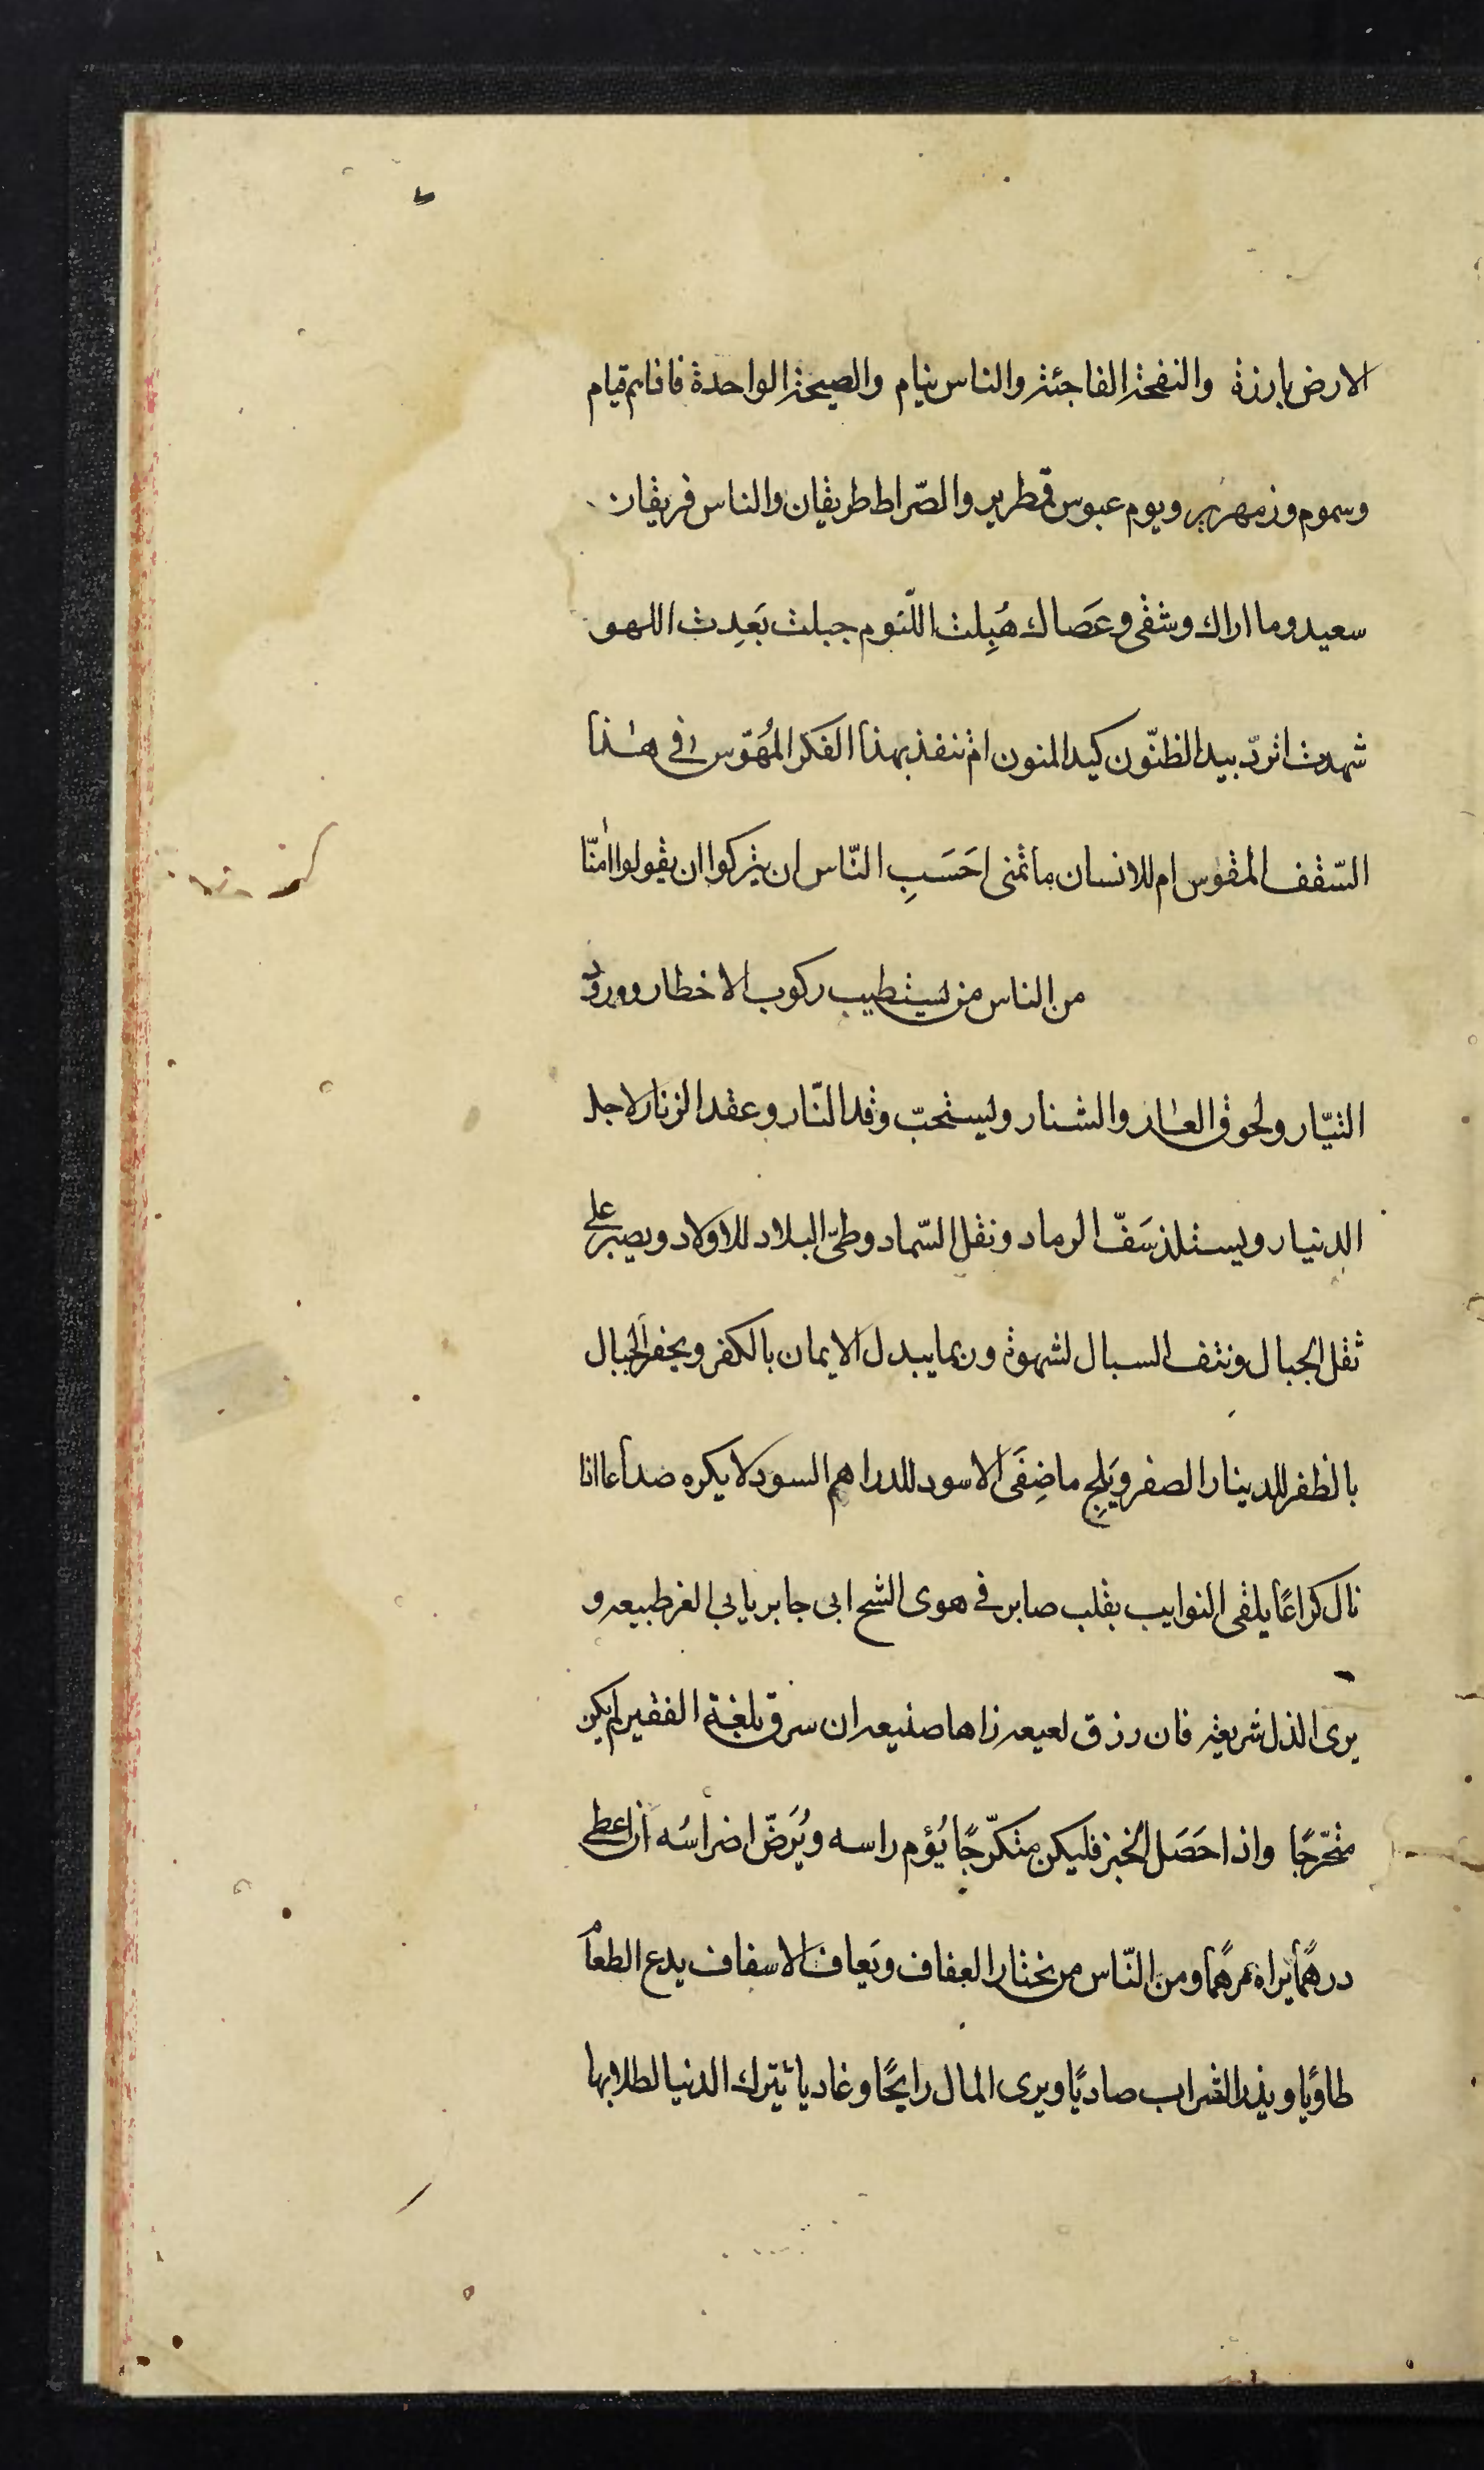 الارض بارزة والنفخة الفاجئة والناس نيام والصيحة الواحدة فاذاهم قيام
وسموم وزمهرير ويوم عبوس قمطرير والصّراط طريقان والناس فريقان
سعيد وما اراك وشقى وعَصاك هُبِلت اللنوم جبلت بَعدت اللهو
شهدت اتردّ بيد الظنّون كيد المنون ام تنفذ بهذا الفكر المُهَوّس فى هذا
السّقف المقوس ام للانسان ما تمنى احَسَبِ النّاس ان يتركوا ان يقولوا امنّا
من الناس من يستطيب ركوب الاخطار وورود
التيّار ولحوق العار والشنار ويستحبّ وقد النّار وعقد الزنار لاجل
الدنيار ويستلذ سَفّ الرماد ونقل السّماد وطىّ البلاد للاولاد ويصبر على
ثقل الجبال ونتف السبال لشهوة وربما يبدل الايمان بالكفر ويحفر الجبال
بالظفر للدينار الصفر ويَلِج ماضِغَى الاسود للدراهم السود لا يكره صداعا اذا
نال كراعًا يلقى النوايب بقلب صابر فى هوى الشح ابى جابر يابى العز طبيعه و
يرى الذل شريعه فان رزق لعيعه زاها صنيعه ان سرق بلغة الفقير لم يكن
متحرّجًا واذا حَصَل الخبز فليكن متكرّجًا يُؤم راسه ويُرَضّ اضراسُه ان اعطى
درهمًا يراه مرهمًا ومن النّاس من يختار العفاف ويَعاف الاسفاف يدع الطعام
طاويًا ويذر الشراب صاديًا ويرى المال رايحًا وغاديا يترك الدنيا لطلابها